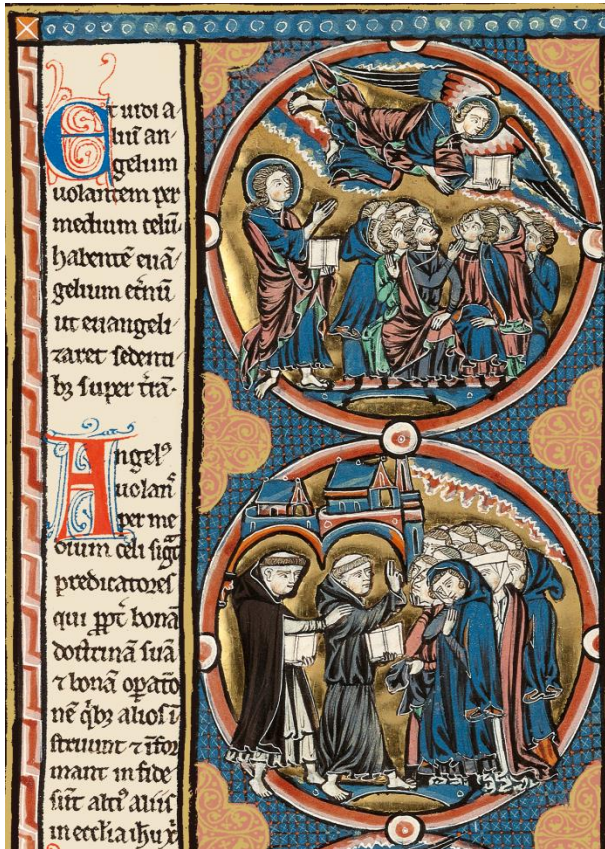 Et vidi a
liū an
gelum
uolantem per
medium celū
habentē euā
gelium etnū
ut euangeli
zaret sedenti
bꝫ super trā
Angelꝰ
uolans̄
per me
dium celi sigͣt
predicatores
qui ꝓpt̄ bonā
doctrinā suā
⁊ bonā oꝑatō
nē q̄bꝫ alios ī
struunt ⁊ īfor
mant in fide
sūt altiꝰ aliis
in eccl̄ia ih̄u xͥ